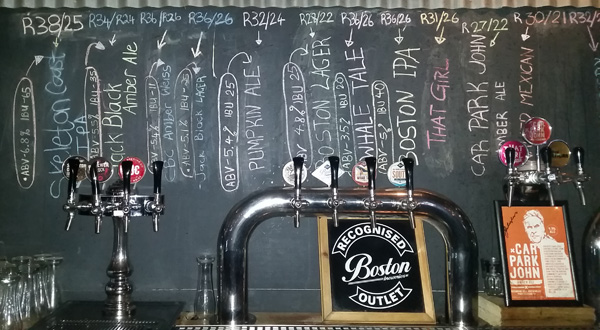 R38/25
R34/R24
R36/R26
R36/26
R32/24
R28/22
R36/26
R36/26
R31/26
R27/22
R30/21
R32/2
•ABV-6.8% IBU-65
Skeleton Coast
IPA
Jack Black
Amber Ale
CBC Amber Weiss
-Jack Black LAGER
ABV-5.4% IBU 25
PUMPKIN ALE
ABV-4.8% IBU 25
BOSTON LAGER
ABV-3.5% IBU 20
WHALE TALE
ABV-5% IBU-40
BOSTON IPA
THAT GIRL
CAR PARK JOHN
AMBER ALE
MEXICAN
RECOGNISED
Boston
BREWERIES
OUTLET
CAR
PARK
JOHN